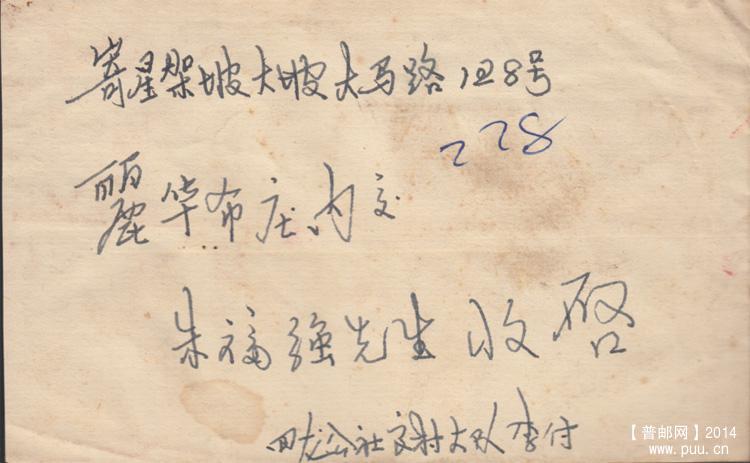 寄星架坡大坡大马路128号
228
丽华布庄内交
朱福强先生 收启
四龙公社文村大队李付
【普邮网】2014
www.puu.cn